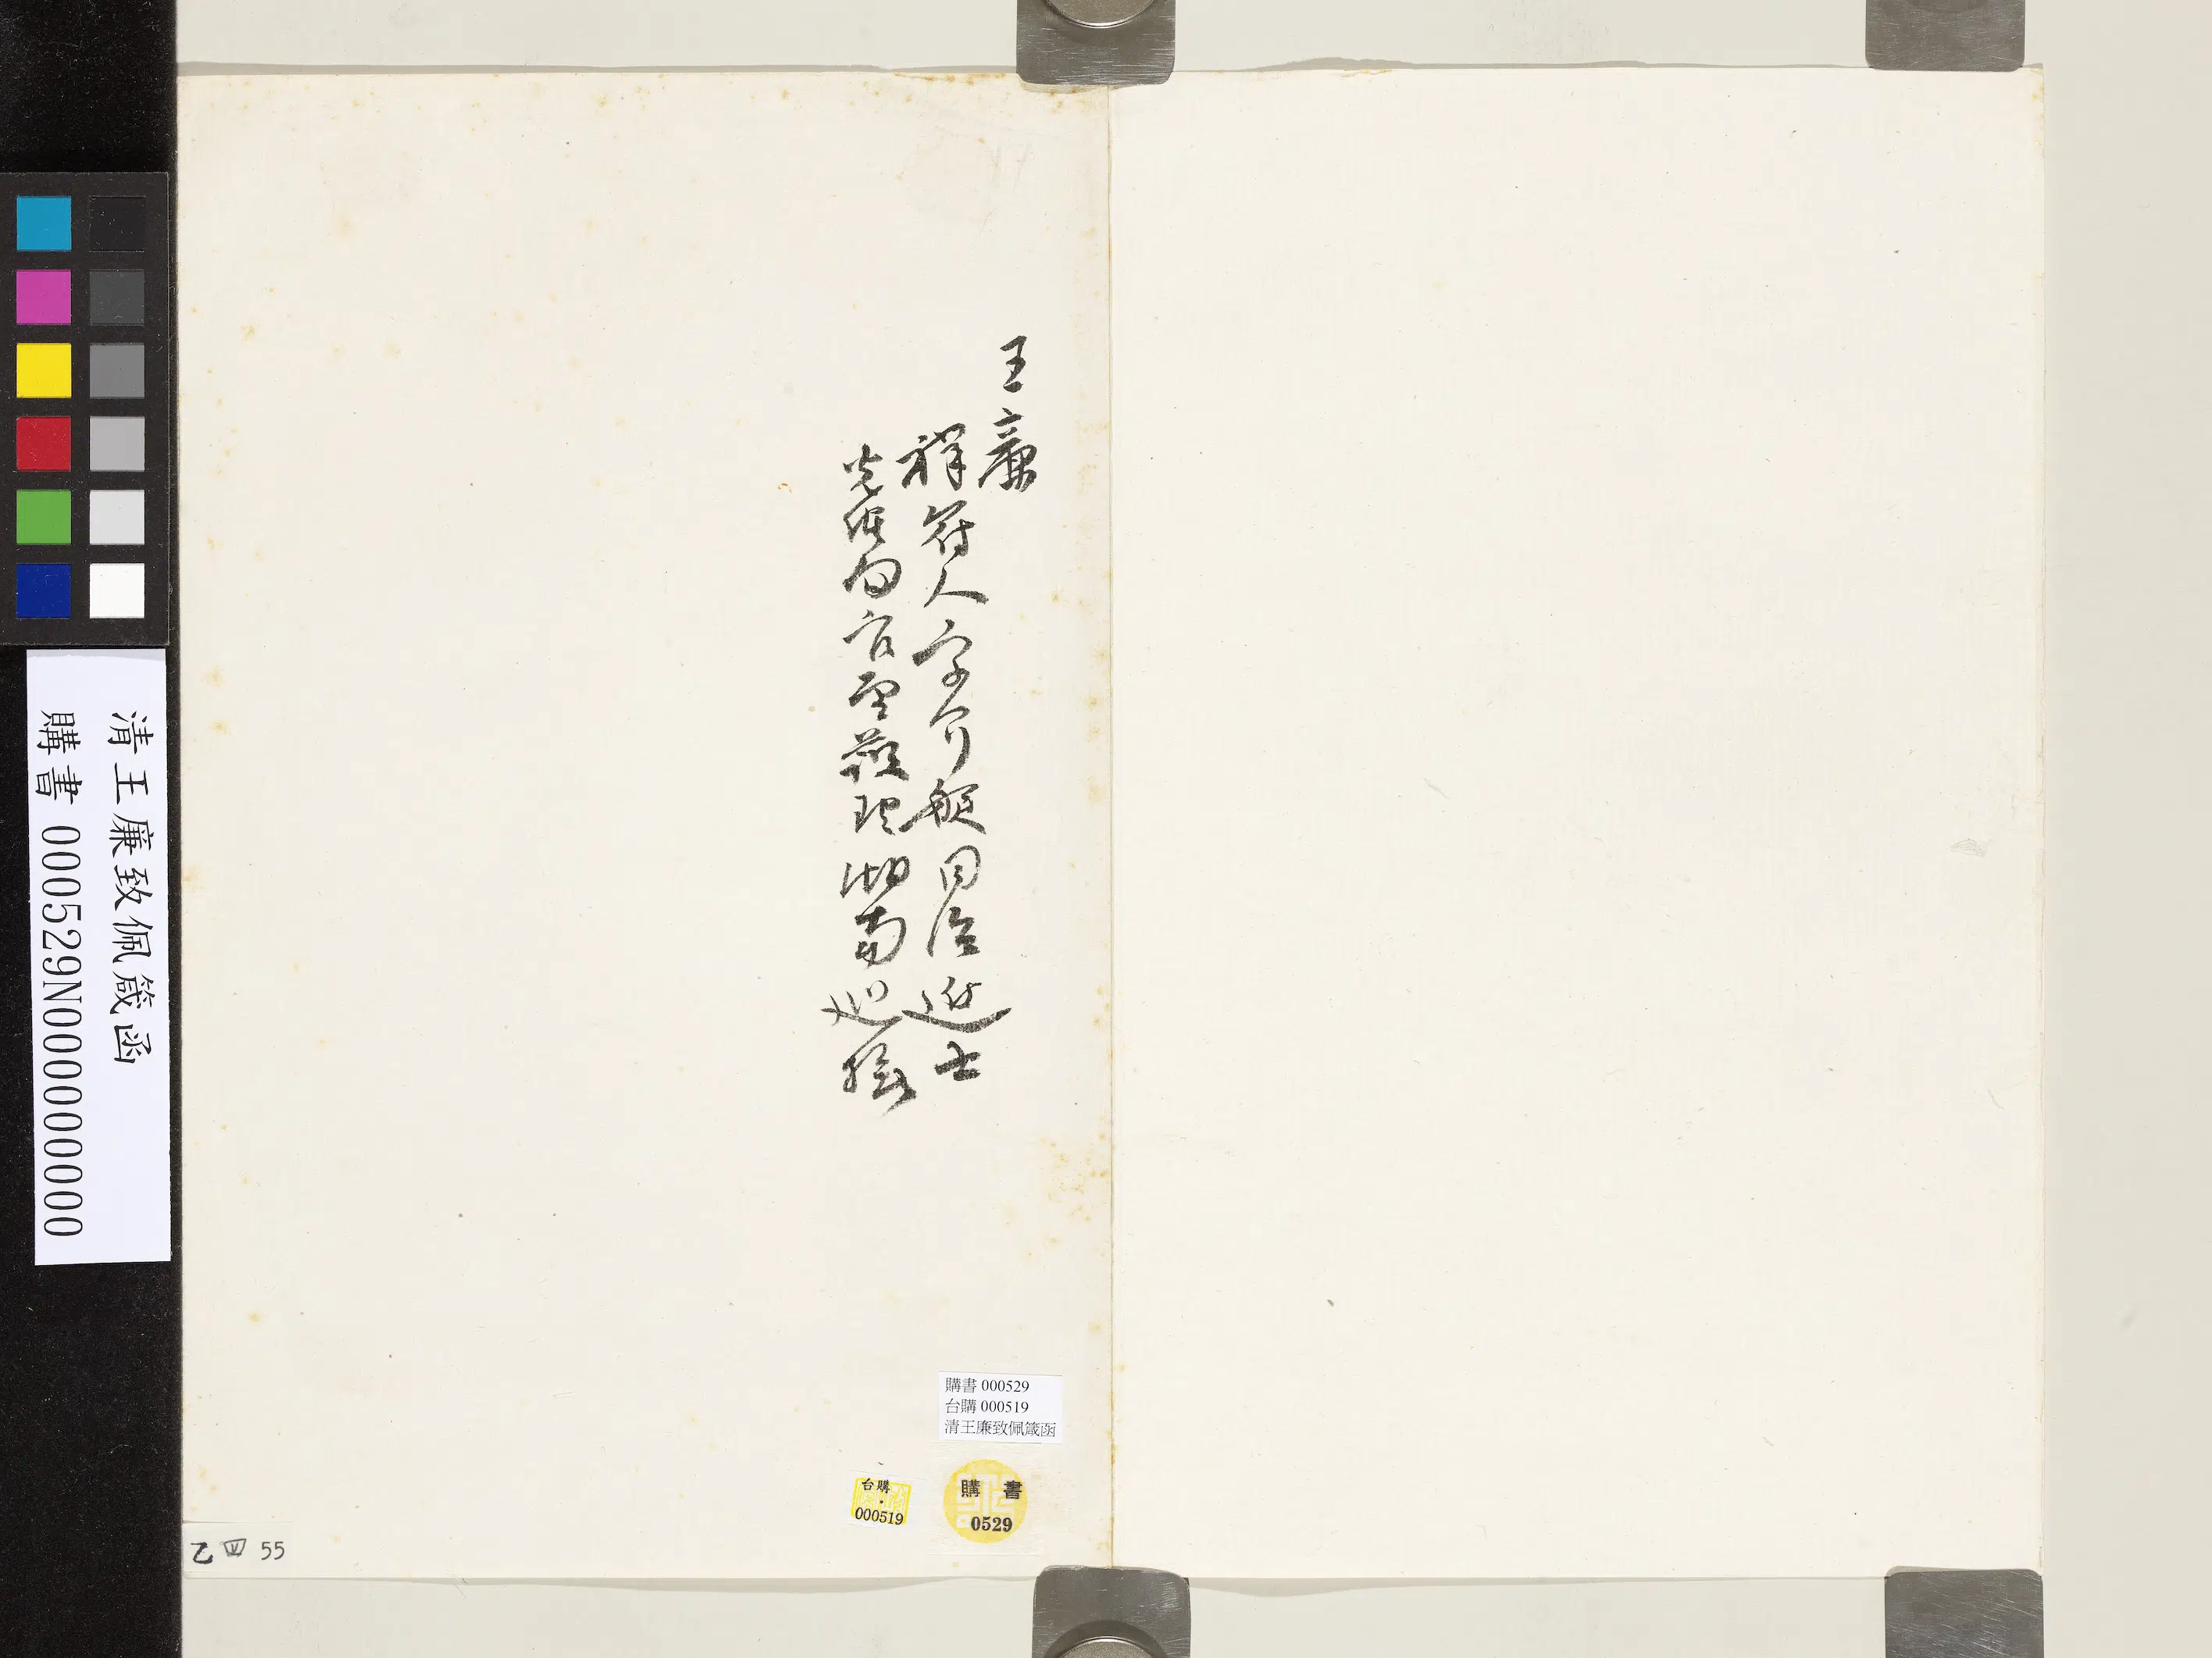 王廉
祥符人字介艇同治進士
光緒間官至護理湖南巡撫
購書 000529
台購 000519
清王廉致佩箴函
購 書
0529
台購
000519
乙 四 55
清王廉致佩箴函
購書 000529N000000000